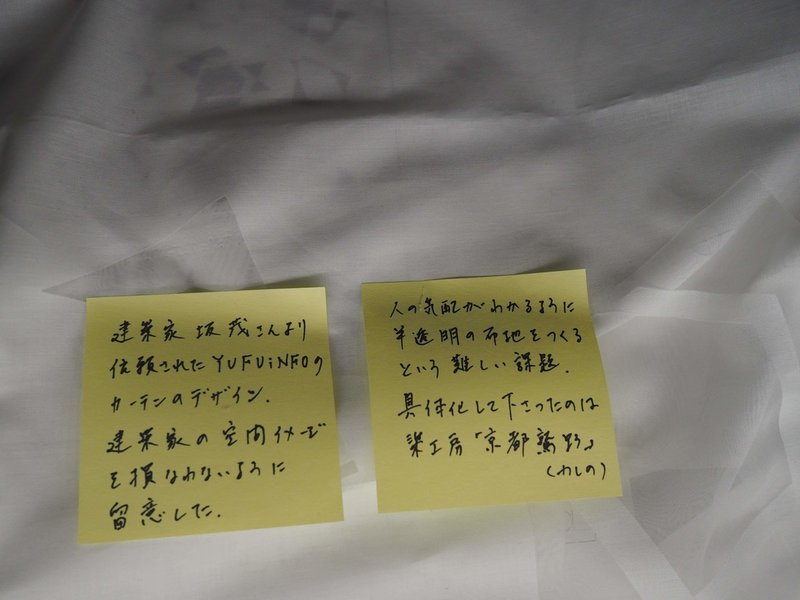 建築家 坂茂さんより
依頼されたYUFUiNFOの
カーテンのデザイン.
建築家の空間イメージ
を損なわないように
留意した.
人の気配がわかるように
半透明の布地をつくる
という難しい課題.
具体化して下さったのは
染工房「京都鷲野」
(わしの)